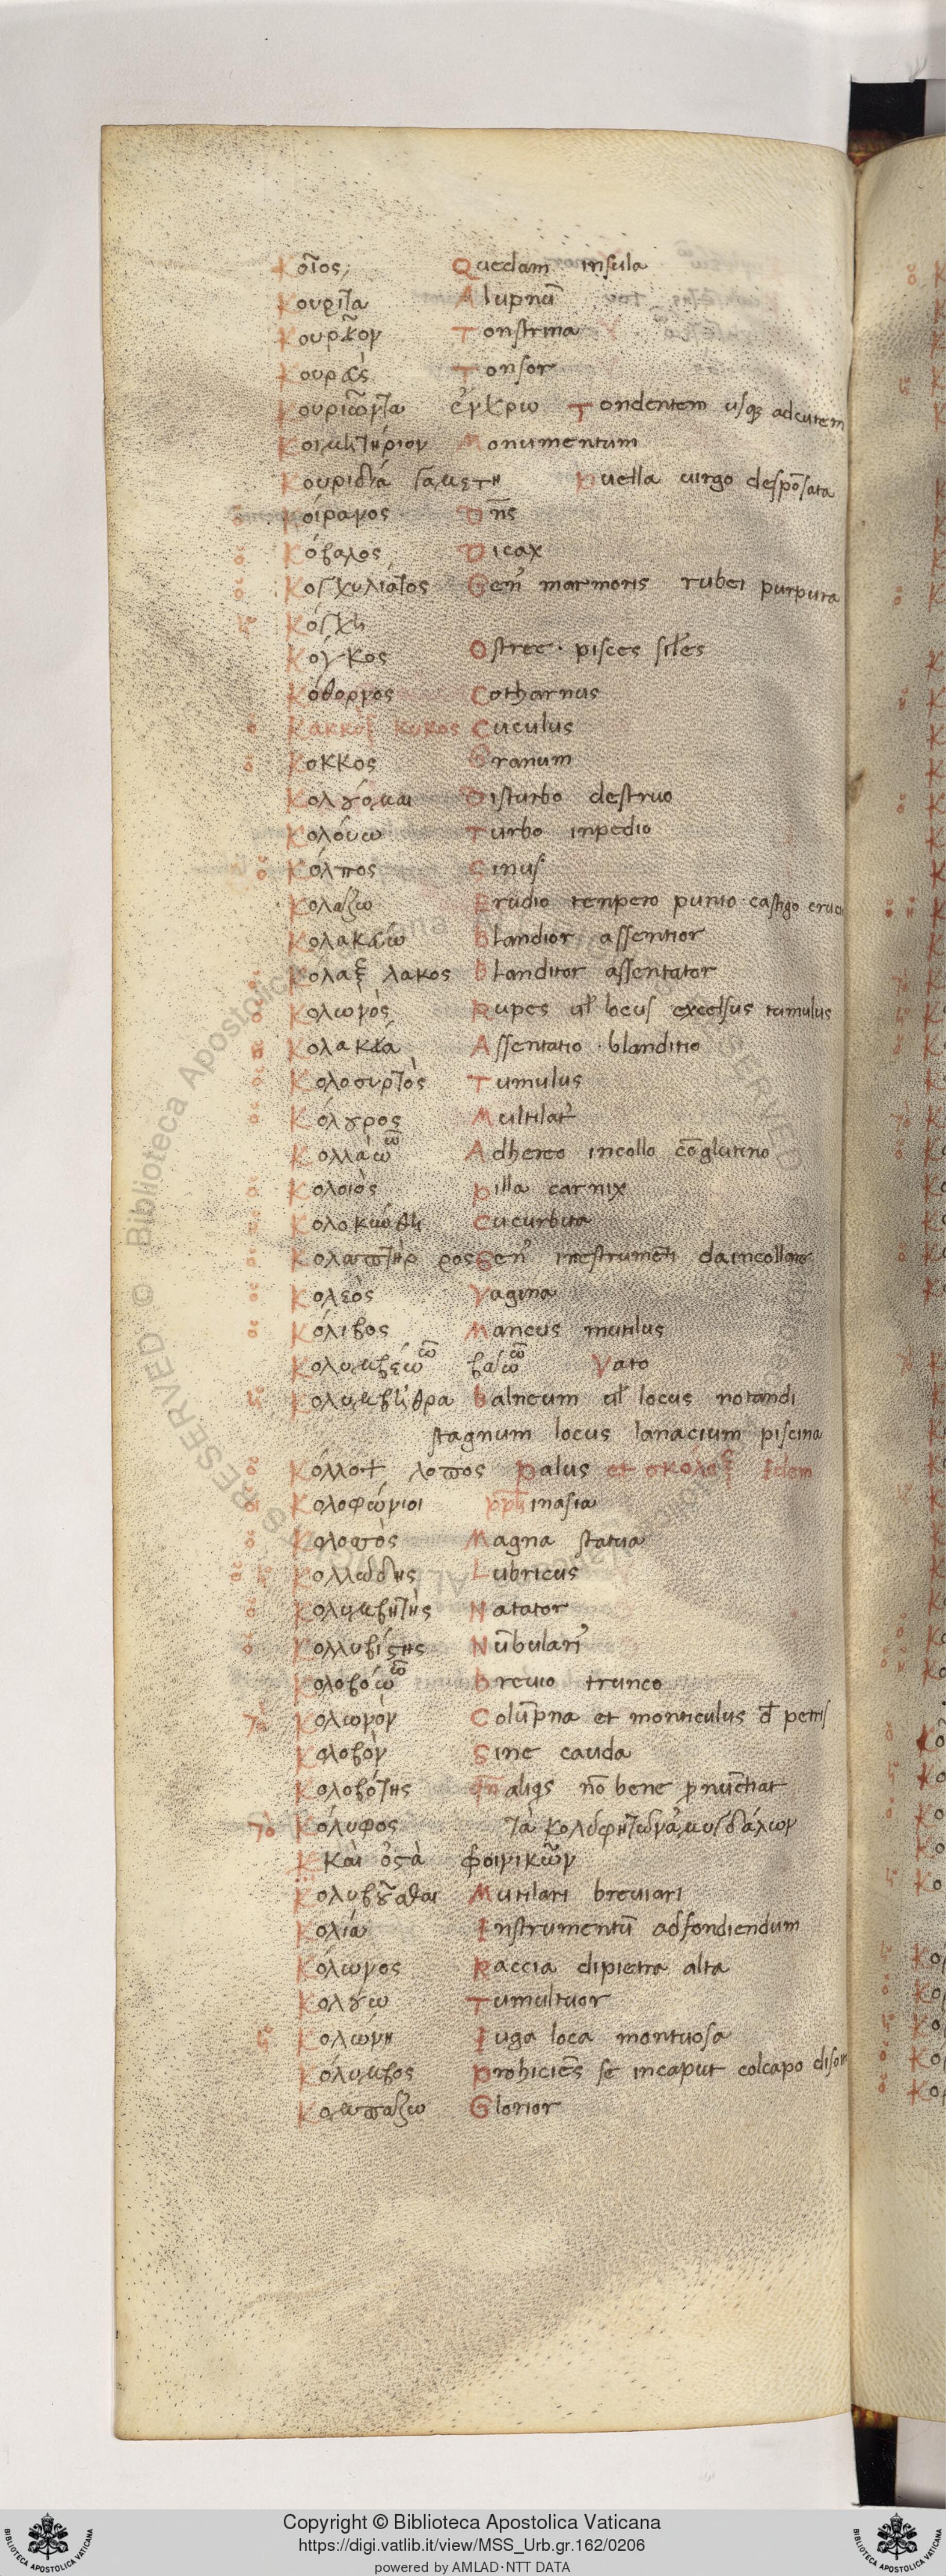 Κοῖος Quedam insula
Κουρῖτα Alupnū
Κουρεῖον Tonstrina
Κουρεὺς Tonsor
Κουριῶντα ἐν χρῶ Tondentem usq; ad cutem
Κοιμητήριον Monumentum
Κουριδία γαμετὴ Puella uirgo despōsata
ὁ Κοίρανος Dn̄s
ὁ Κόβαλος Dicax
ὁ Κογχυλιάτος Gen' marmoris rubei purpura
ἡ Κόγχη
Κόγκος Ostree · pisces siles
Κόθορνος Cothurnus
ὁ Κακκὺξ κυκος Cuculus
ὁ Κοκκος Granum
Κολούμαι Disturbo destruo
Κολούω Turbo inpedio
ὁ Κόλπος Sinus
Κολαζω Erudio tenpero punio · castigo
Κολακεύω Blandior assentior
ὁ Κόλαξ λακος Blanditor assentator
ὁ Κολωνὸς Rupes ul' locus excelsus tumulus
Κολακεία Assentatio · blanditio
ὁ Κολοσυρτὸς Tumulus
ὁ Κόλουρος Mutilat'
Κολλάω ῶ Adhereo incollo cōglutino
ὁ Κολοιὸς Pilla carnix
Κολοκύνθη Cucurbita
Κολαπτὴρ ρος Gen' instrumenti
ὁ Κολεὸς Vagina
ὁ Κόλιβος Mancus mutilus
Κολυμβέω ῶ Nato
ἡ Κολυμβήθρα Balneum ul' locus notandi
stagnum locus lanacium piscina
ὁ Κόλλοψ λοπος Palus et σκόλοψ Idem
οἱ Κολοφώνιοι inasia
ὁ Κολοσὸς Magna statua
ὁ ἡ Κολλώδης Lubricus
ὁ Κολυμβητὴς Natator
ὁ Κολλυβίστης Nūbulari'
Κολοβόω ῶ Breuio trunco
Τὸ Κολωνὸν Colūpna et monticulus d' petris
Κολοβὸν Sine cauda
Κολοβότης qn̄ aliqs nō bene pnūctiat
Τὸ Κόλυφος Τὰ κολύφη τῶν ἀμυγδάλων
Κ και ὀστὰ φοινικῶν
Κολυβοῦσθαι Mutilari breuiari
Κολιά Instrumentū ad fondiendum
Κόλωνος Raccia dipietra alta
Κολούω Tumultuor
ἡ Κολώνη Iuga loca montuosa
Κόλυμβος Prohiciēs se incaput colcapo
Κομπαζω Glorior
Copyright © Biblioteca Apostolica Vaticana
https://digi.vatlib.it/view/MSS_Urb.gr.162/0206
powered by AMLAD·NTT DATA